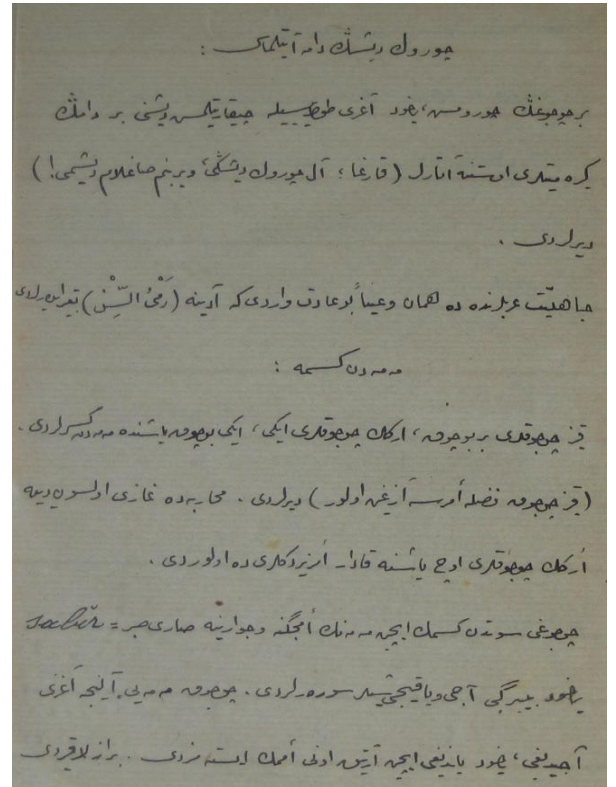 چوروك ديشڭ دامه آتيلماسى :
بر چوجوغڭ چورومش، ياخود آغرى طولاييسيله چيقارتيلمش ديشنى بر دامڭ
كره ميتلرى اوستنه آتارلر (قارغا ؛ آل چوروك ديشڭى، وير بنم صاغلام ديشمى!)
ديرلردى .
جاهليّت عربلرنده ده همان وعيناً بو عادت واردى كه آدينه (رَمْىُ السِّنْ) تعبير ايدرلردى
مه مه دن كسمه :
قيز چوجوقلرى بر بوچوق ، اركك چوجوقلرى ايكى ، ايكى بوچوق ياشنده مه مه دن كسرلردى .
(قيز چوجوق فضله أمرسه آزغين اولور) ديرلردى . محاربه ده غازى اولسون ديه
أركك چوجوقلرى اوچ ياشنه قادار أمزيردكلرى ده اولوردى .
چوجوغى سوتدن كسمك ايچين مه مه نڭ أمجگنه وجوارينه صارى صبر =
ياخود بيبر گبى آجى ويا ياقيجى شيلر سوررلردى . چوجوق مه مه يى آلنجه آغزى
آجيديغى ، ياخود يانديغى ايچين آرتيق اونى أممك ايسته مزدى . براز لاقيردى